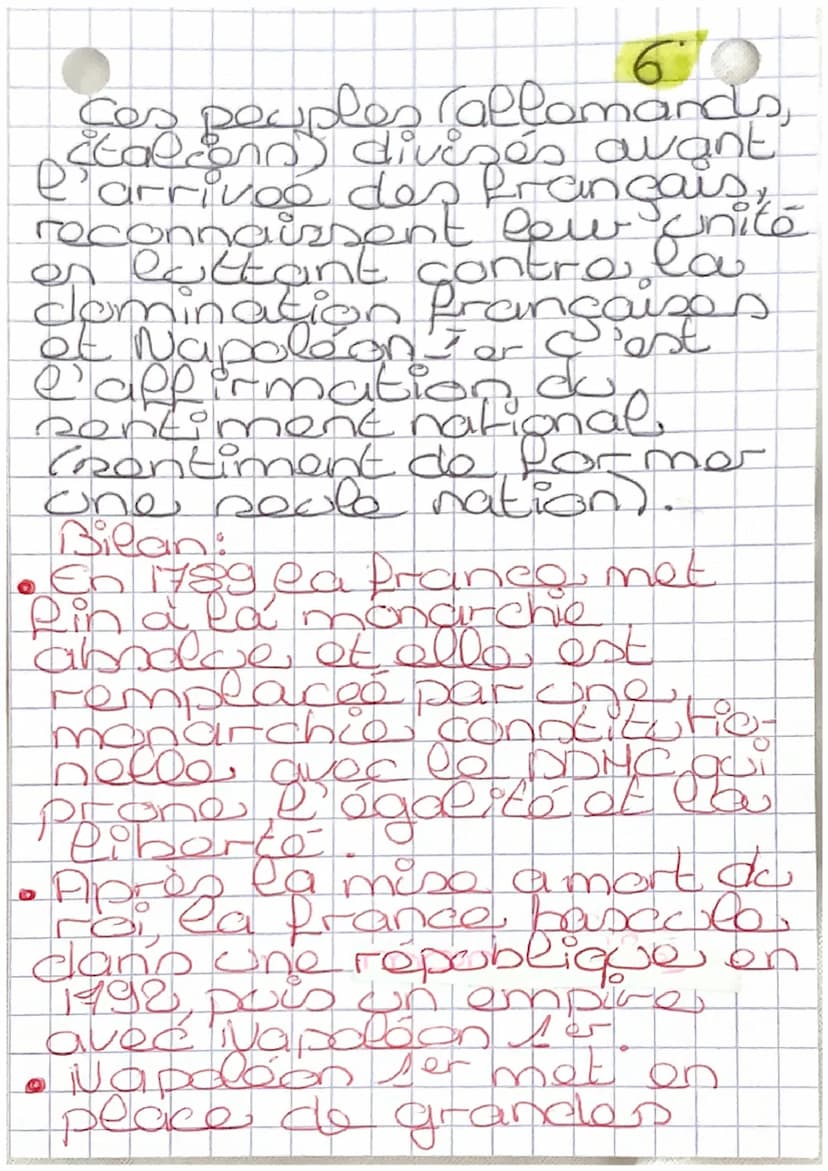 6
Ces peuples (allemands,
italiens) divisés avant
l'arrivée des français,
reconnaissent leur unité
en luttant contre la
domination françaises
et Napoléon Ier c'est
l'affirmation du
sentiment national
(sentiment de former
une seule nation).
Bilan:
• En 1789 la france met
fin à la monarchie
absolue et elle est
remplaceé par une
monarchie constitutio-
nelle avec le DDHC qui
prone l'égalité et la
liberté.
• Après la mise a mort du
roi, la france bascule
dans une république en
1792, puis un empire
avec Napoléon 1er.
• Napoléon 1er met en
place de grandes